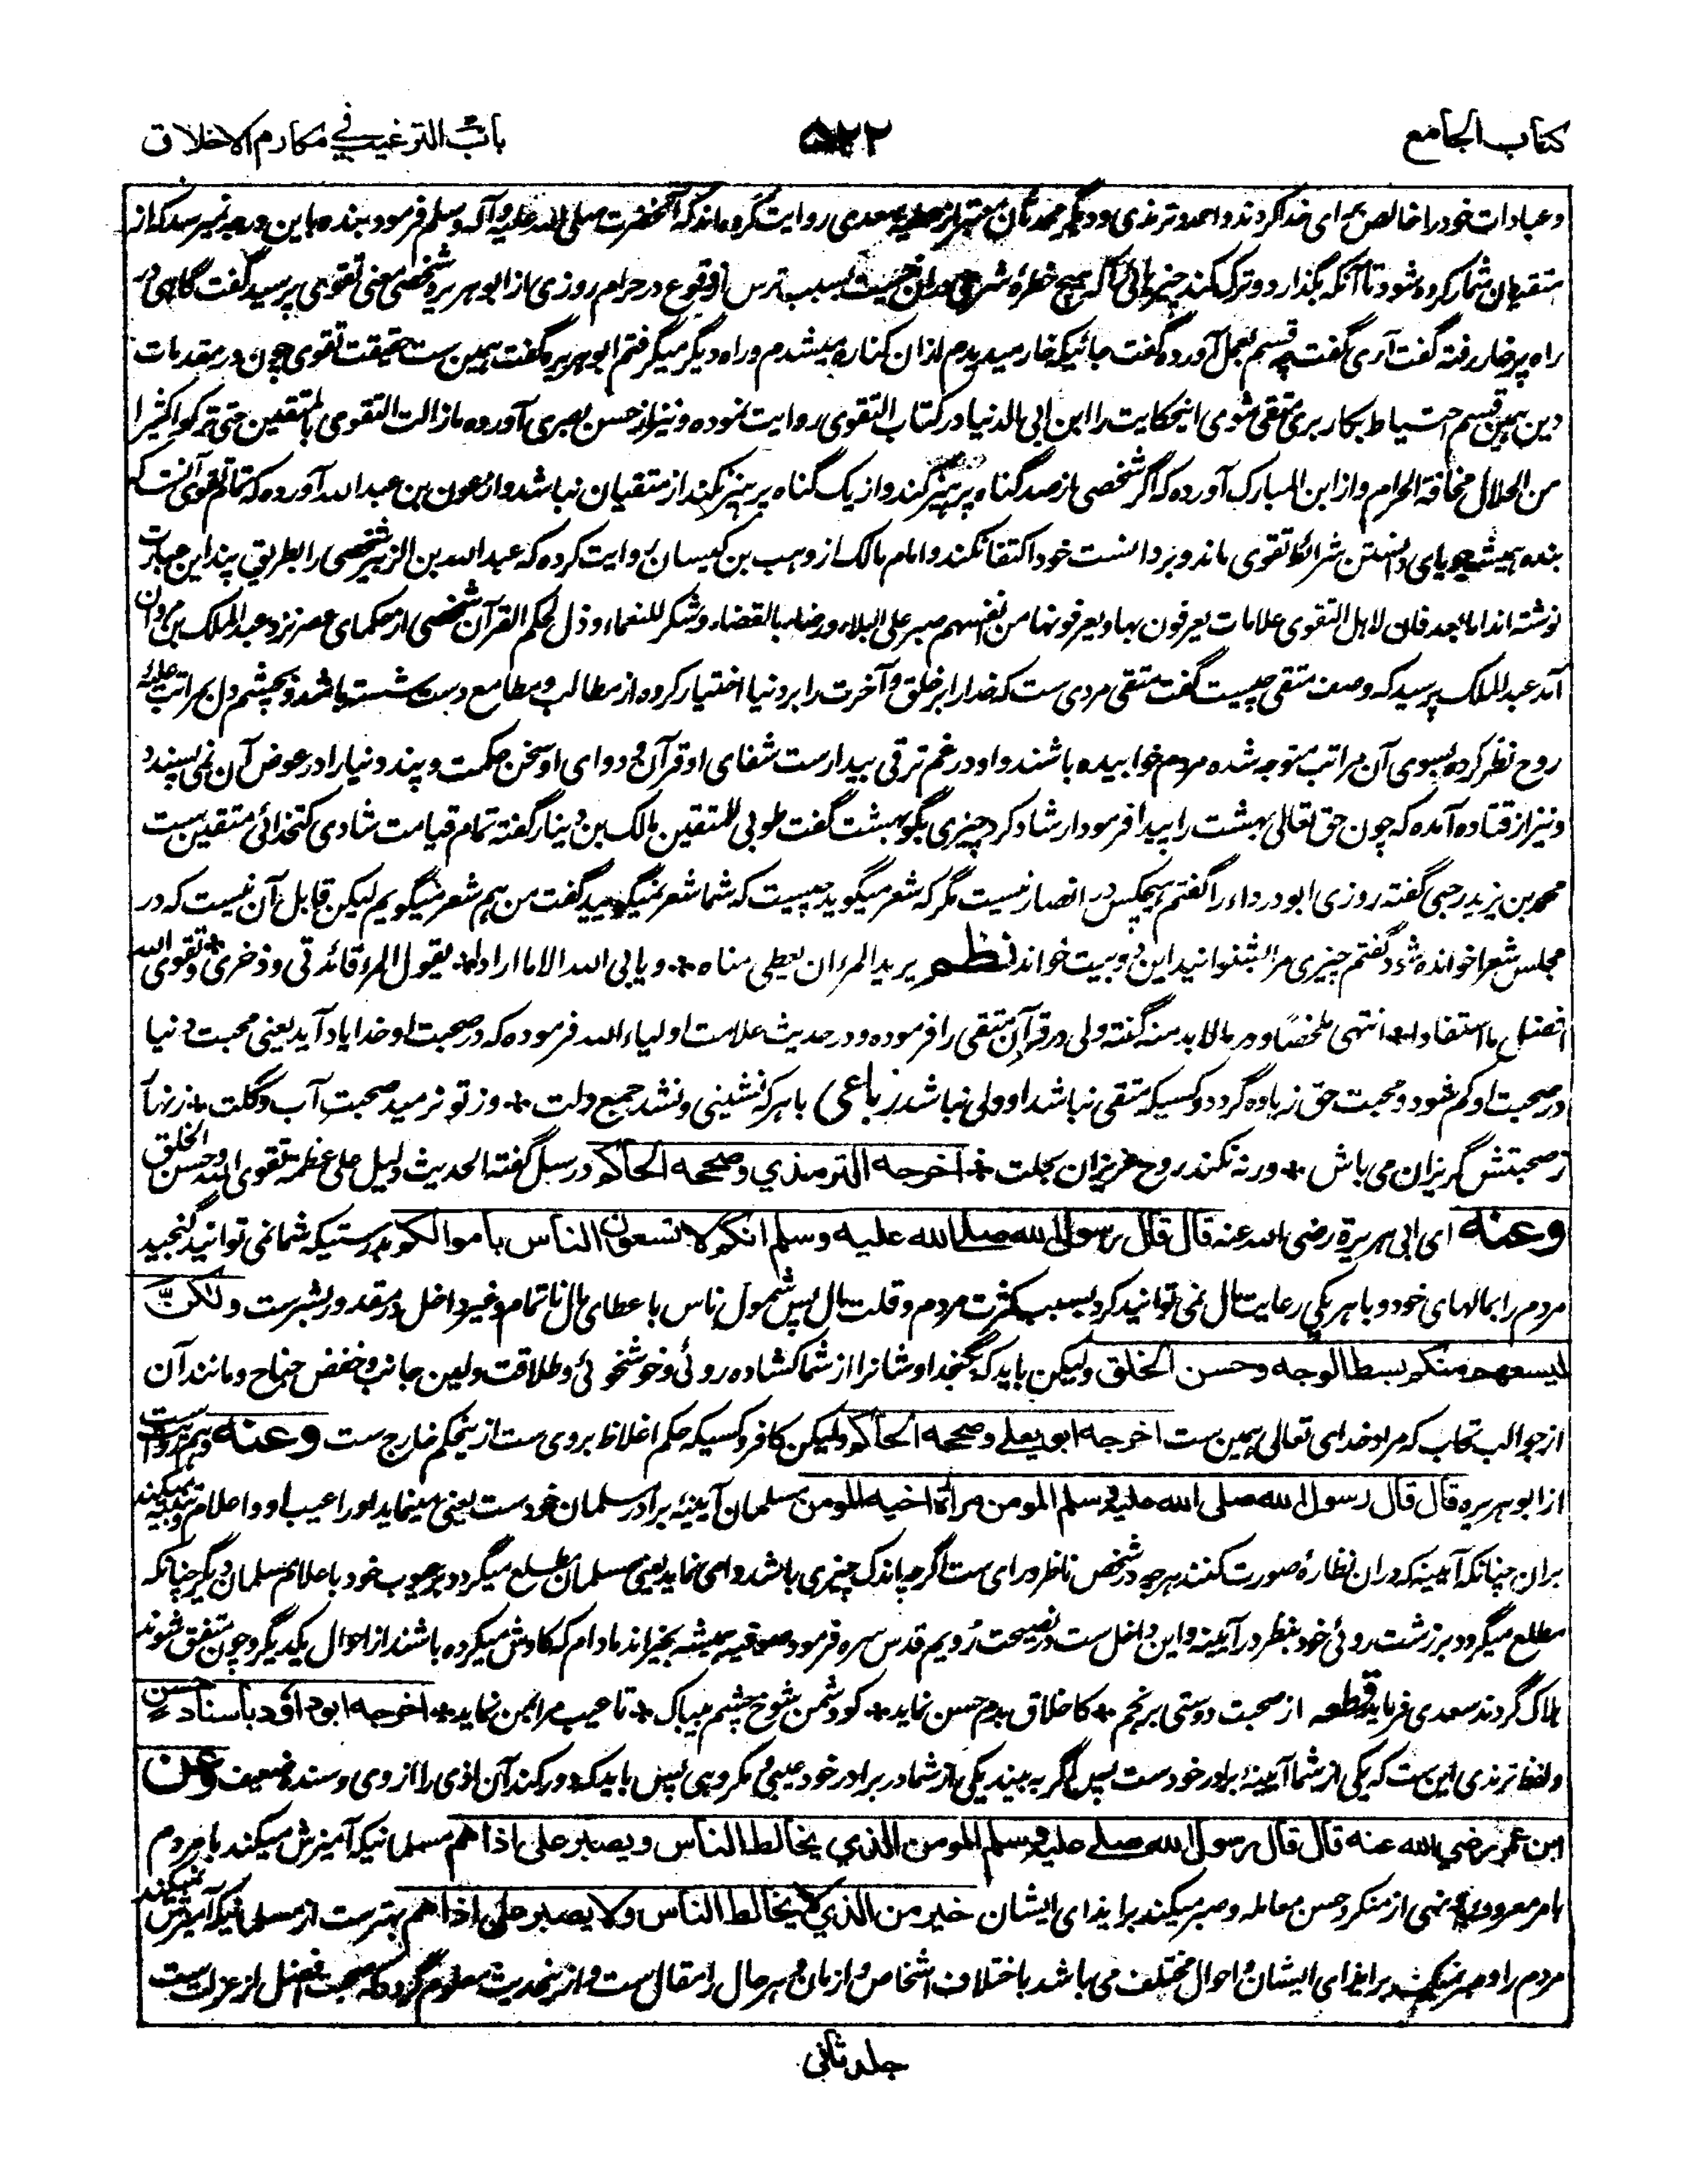 کتاب الجامع ۵۲۲ باب الترغیب فی مکارم الاخلاق
و عبادات خود را خالص برای خدا کردند و احمد و ترمذی و دیگر محدثان از عطیه سعدی روایت کرده‌اند که آنحضرت صلی الله علیه و آله وسلم فرمود بنده باین درجه نمیرسد که از
متقیان شمار کرده شود تا آنکه بگذارد و ترک کند چیزهائی را که هیچ خطرهٔ شرعی دران نیست بسبب ترس از وقوع در حرام روزی از ابو هریره شخصی معنی تقوی پرسید گفت گاهی در
راه پرخار رفته گفت آری گفت چه قسم بعمل آورده گفت جائیکه خار میدیدم ازان کناره میشدم و راه دیگر میگرفتم ابو هریره گفت همین ست حقیقت تقوی چون در مقدمات
دین همین قسم احتیاط بکار بری متقی شوی اینحکایت را ابن ابی الدنیا در کتاب التقوی روایت نموده و نیز از حسن بصری آورده ما زالت التقوی بالمتقین حتی ترکوا کثیرا
من الحلال مخافة الحرام و از ابن المبارک آورده که اگر شخصی از صد گناه پرهیز کند و از یک گناه پرهیز نکند از متقیان نباشد و از عون بن عبد الله آورده که تمام تقوی آنست که
بنده همیشه جویای دانستن شرائط تقوی ماند و بر دانست خود اکتفا نکند و امام مالک از وهب بن کیسان روایت کرده که عبد الله بن الزبیر شخصی را بطریق پند این عبارت
نوشته اند اما بعد فان لاهل التقوی علامات یعرفون بها و یعرفونها من انفسهم صبر علی البلاء و رضاء بالقضاء و شکر للنعماء و ذل لحکم القرآن شخصی از حکمای عصر نزد عبد الملک بن مروان
آمد عبد الملک پرسید که وصف متقی چیست گفت متقی مردی ست که خدا را بر خلق و آخرت را بر دنیا اختیار کرده از مطالب و مطامع دست شسته باشد و بچشم دل بمراتب علیهٔ
روح نظر کرده بسوی آن مراتب متوجه شده مردم خوابیده باشند و او در غم ترقی بیدار ست شفای او قرآن و دوای او سخن حکمت و پند دنیا را در عوض آن نمی پسندد
و نیز از قتاده آمده که چون حق تعالی بهشت را پیدا فرمود ارشاد کرد چیزی بگو بهشت گفت طوبی للمتقین مالک بن دینار گفته تمام قیامت شادی کتخدائی متقین ست
محمد بن یزید رحبی گفته روزی ابو درداء را گفتم هیچکس در انصار نیست مگر که شعر میگوید چیست که شما شعر نمیگویید گفت من هم شعر میگویم لیکن قابل آن نیست که در
مجلس شعرا خوانده شود گفتم چیزی مرا بشنوانید این دو بیت خواند نظم یرید المرء ان یعطی مناه * ویابی الله الا ما ارادا * یقول المرء فائدتی و ذخری * و تقوی الله
افضل ما استفادا * انتهی ملخصًا و در مالابد منه گفته ولی در قرآن متقی را فرموده و در حدیث علامت اولیاء الله فرموده که در صحبت او خدا یاد آید یعنی محبت دنیا
در صحبت او کم شود و محبت حق زیاده گردد و کسیکه متقی نباشد او ولی نباشد رباعی با هر که نشینی و نشد جمع دلت * وز تو نرمید صحبت آب و گلت * زنهار
از صحبتش گریزان می باش * ورنه نکند روح عزیزان بحلت * اخرجه الترمذی وصححه الحاکم در سبل گفته الحدیث دلیل علی عظمة تقوی الله وحسن الخلق
وعنه ای ابی هریرة رضی الله عنه قال قال رسول الله صلی الله علیه وسلم انکم لا تسعون الناس باموالکم بدرستیکه شما نمی توانید گنجید
مردم را بمالهای خود و با هر یکی رعایت مال نمی توانید کرد بسبب کثرت مردم و قلت مال پس شمول ناس با عطای مال ناتمام و غیر داخل در مقدور بشر ست ولکنّ
لیسعهم منکم بسط الوجه وحسن الخلق ولیکن باید که بگنجد اوشان را از شما کشاده روئی و خوشخوئی و طلاقت و لین جانب و خفض جناح و مانند آن
از جوالب تحاب که مراد خدای تعالی همین ست اخرجه ابو یعلی وصححه الحاکم ولیکن کافر و کسیکه حکم اغلاظ بروی ست ازینحکم خارج ست وعنه وهم روایت ست
از ابو هریره قال قال رسول الله صلی الله علیه وسلم المومن مرآة اخیه المومن مسلمان آیینهٔ برادر مسلمان خود ست یعنی مینماید او را عیب او و اعلام و تنبیه میکند
بران چنانکه آیینه که دران نظارهٔ صورت کنند هر چه در شخص ناظر و رای ست اگرچه اندک چیزی باشد وا می نماید یعنی مسلمان مطلع میگردد بر عیوب خود باعلام مسلمان دیگر چنانکه
مطلع میگردد بر زشت روئی خود بنظر در آیینه و این داخل ست در نصیحت رویم قدس سره فرمود صوفیه همیشه بخیر اند مادام که کاوش میکرده باشند از احوال یکدیگر و چون متفق شوند
هلاک گردند سعدی فرماید قطعه از صحبت دوستی برنجم * کاخلاق بدم حسن نماید * کو دشمن شوخ چشم بیباک * تا عیب مرا بمن نماید * اخرجه ابو داؤد باسناد حسن
و لفظ ترمذی این ست که یکی از شما آیینهٔ برادر خود ست پس اگر به بیند یکی از شما در برادر خود عیبی و مکروهی پس باید که دور کند آن اذی را از وی و سنده ضعیف وعن
ابن عمر رضی الله عنه قال قال رسول الله صلی علیه وسلم المومن الذی یخالط الناس ویصبر علی اذاهم مسلمانیکه آمیزش میکند با مردم
بامر معروف و نهی از منکر و حسن معامله و صبر میکند بر ایذای ایشان خیر من الذی لا یخالط الناس ولا یصبر علی اذاهم بهتر ست از مسلمانیکه آمیزش نمیکند
مردم را و صبر نمیکند بر ایذای ایشان و احوال مختلف می باشد باختلاف اشخاص و ازمان و هر حال را مقال ست و ازینحدیث معلوم گردد که صحبت افضل از عزلت ست
جلد ثانی